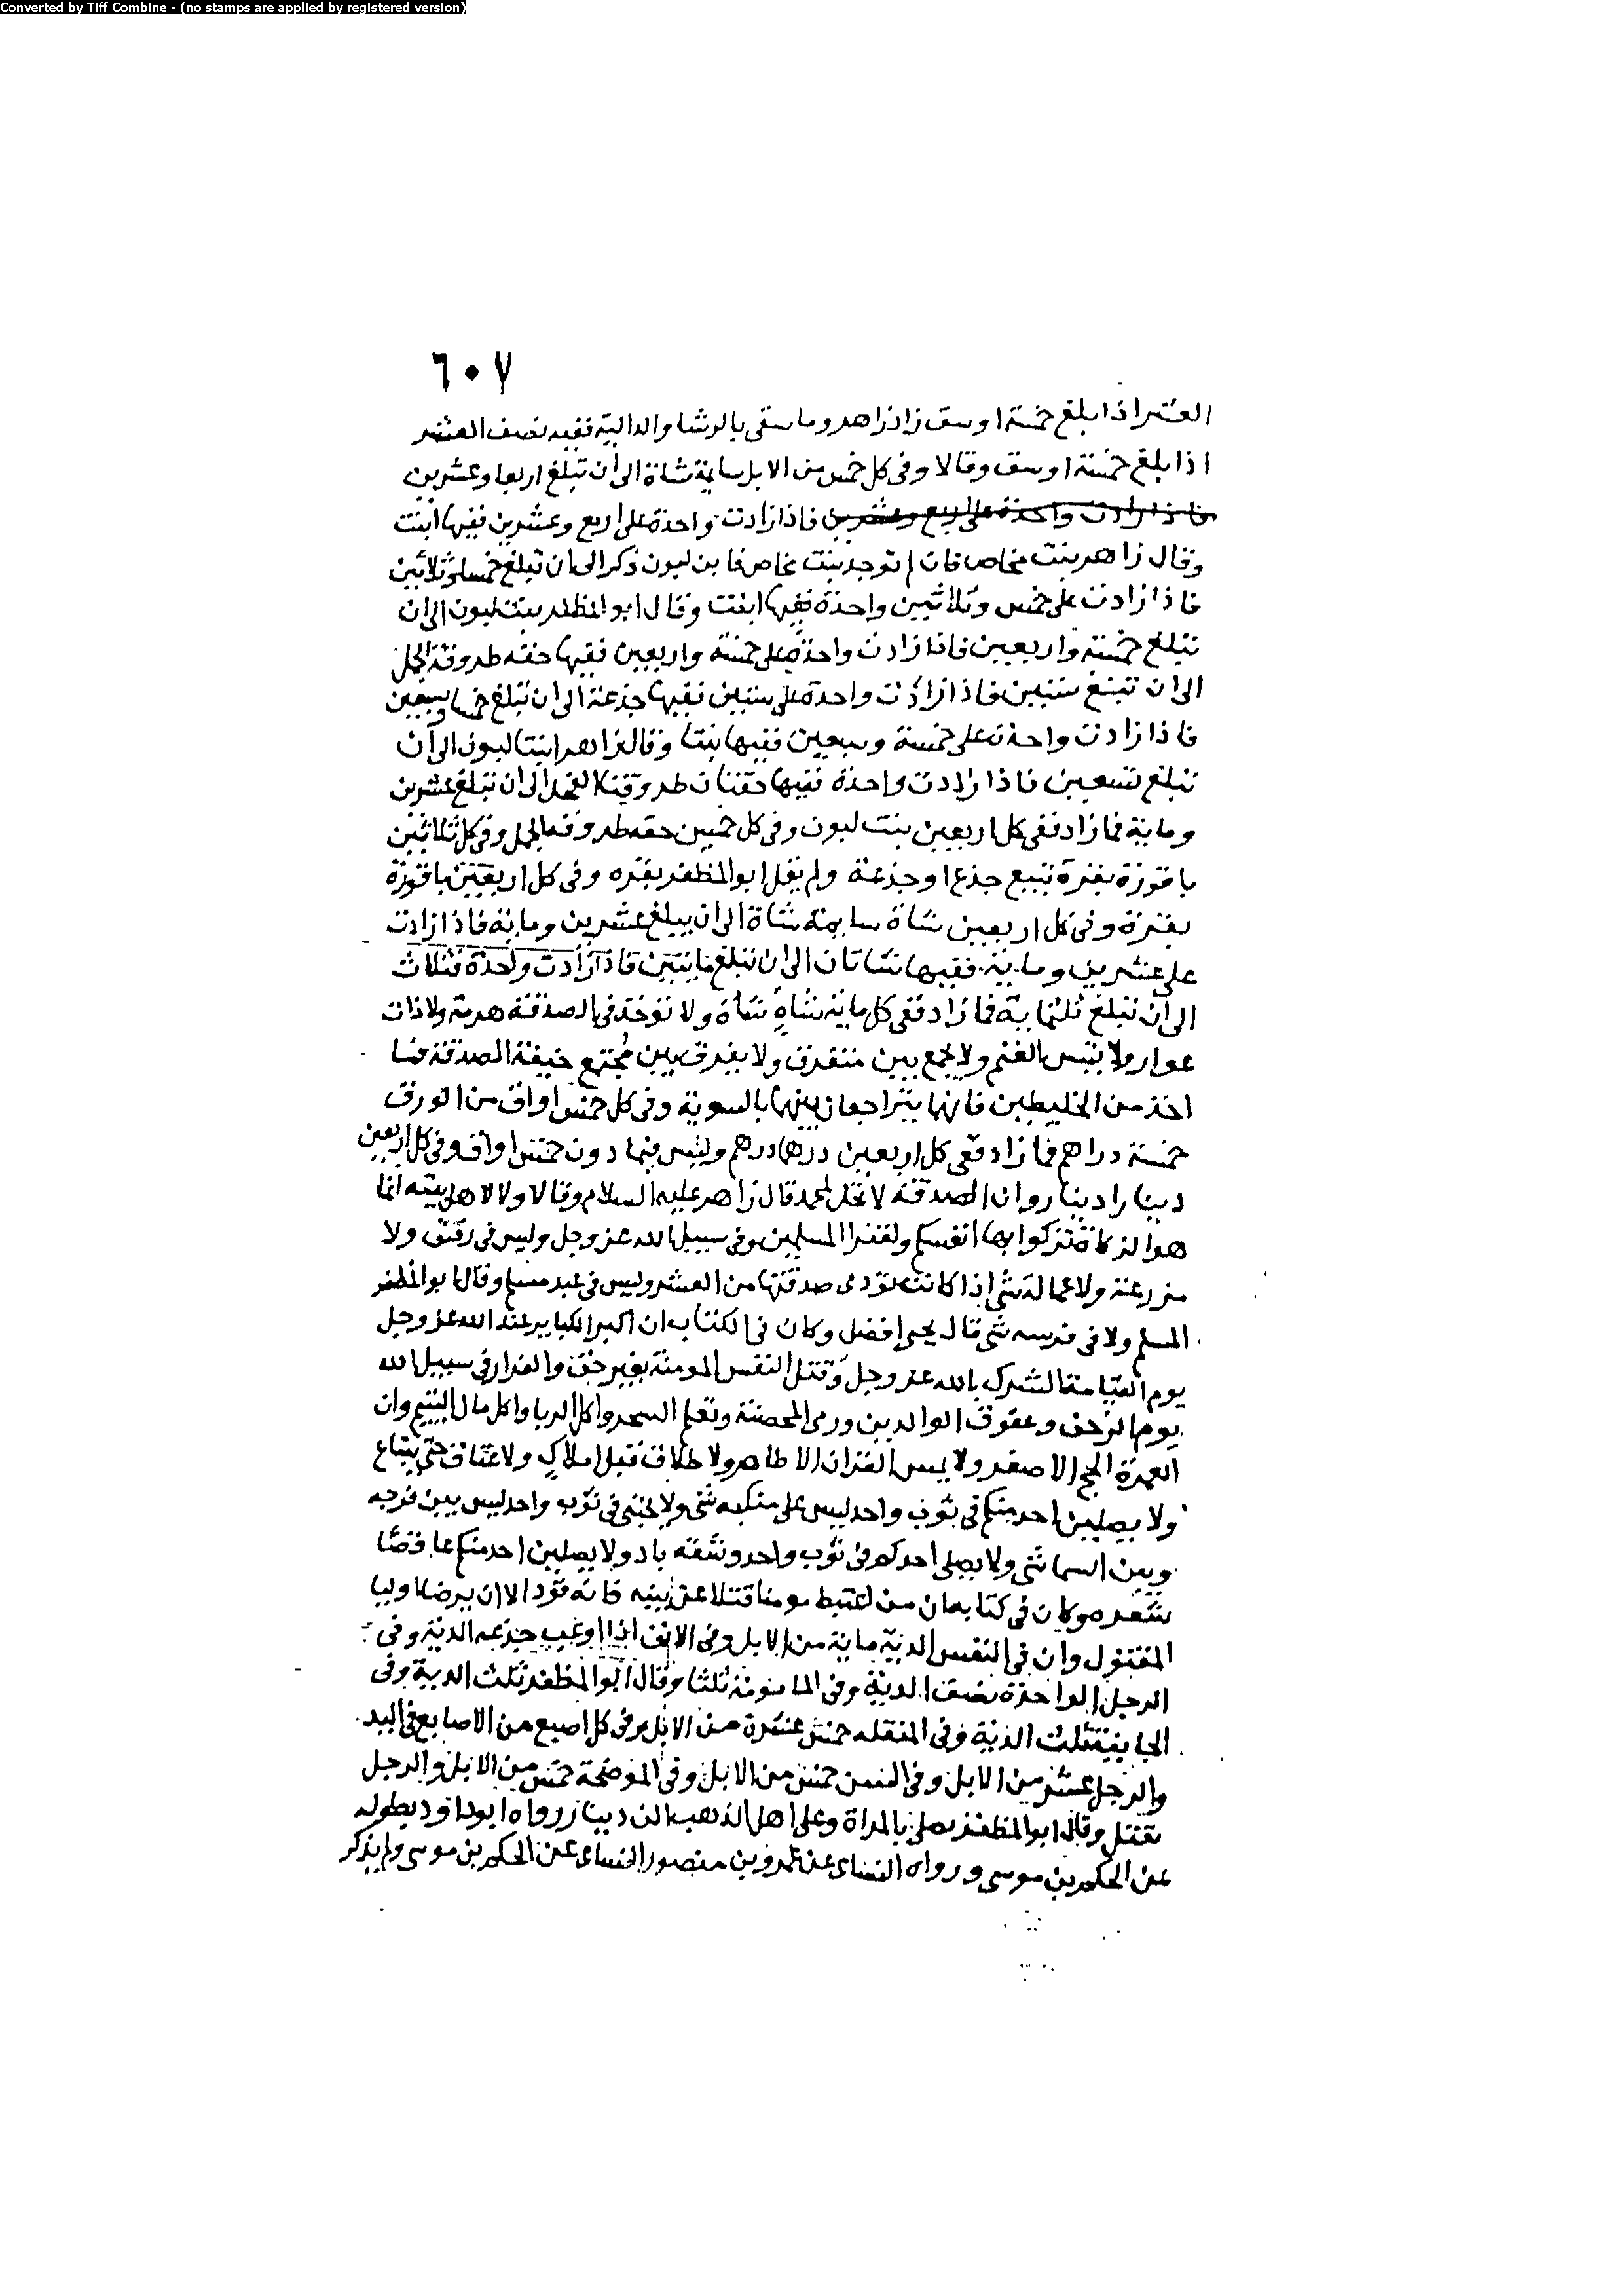 Converted by Tiff Combine - (no stamps are applied by registered version)
٦٠٧
العشر اذا بلغ خمسة اوسق زاد زاهر وما سقى بالرشا والدالية ففيه نصف العشر
اذا بلغ خمسة اوسق وقالا وفى كل خمس من الابل سايمة شاة الى أن تبلغ اربعا وعشرين
فاذا زادت واحدة على اربع وعشرين فاذا زادت واحدة على اربع وعشرين ففيها ابنت
وقال زاهر بنت مخاض فان لم توجد بنت مخاض فابن لبون ذكر الى ان تبلغ خمسا وثلاثين
فاذا زادت على خمس وثلاثين واحدة ففيها ابنت وقال ابو المظفر بنت لبون الى ان
تبلغ خمسة واربعين فاذا زادت واحدة على خمسة واربعين ففيها حقه طروقة الجمل
الى ان تبلغ ستين فاذا زادت واحدة على ستين ففيها جذعة الى ان تبلغ خمسا وسبعين
فاذا زادت واحدة على خمسة وسبعين ففيها بنتا وقال زاهر ابنتا لبون الى ان
تبلغ تسعين فاذا زادت واحدة ففيها حقتان طروقتا الفحل الى ان تبلغ عشرين
وماية فما زاد ففى كل اربعين بنت لبون وفى كل خمسين حقه طروقه الجمل وفى كل ثلاثين
باقورة بقرة تبيع جذع او جذعة ولم يقل ابو المظفر بقره وفى كل اربعين باقورة
بقرة وفى كل اربعين شاة سايمة شاة الى ان يبلغ عشرين وماية فاذا زادت
على عشرين وماية ففيها شاتان الى ان تبلغ مايتين فاذا زادت واحدة فثلاث
الى ان تبلغ ثلثماية فما زاد ففى كل ماية شاةٍ شاة ولا توخذ فى الصدقة هرمة ولا ذات
عوار ولا تيس الغنم ولا يجمع بين متفرق ولا يفرق بين مُجتمع خيفة الصدقة فما
اخذ من الخليطين فانهما يتراجعان بينهما بالسوية وفى كل خمس اواق من الورق
خمسة دراهم فما زاد ففى كل اربعين درهما درهم وليس فيما دون خمس اواق وفى كل اربعين
دينارا دينار وان الصدقة لا تحل لمحمد قال زاهر عليه السلام وقالا ولا لاهل بيته انما
هو الزكاة تزكوا بها انفسكم ولفقرا المسلمين وفى سبيل الله عز وجل وليس فى رقيق ولا
مزرعة ولا عمالة شى اذا كانت تؤدى صدقتها من العشر وليس فى عبد مسلم وقال ابو المظفر
المسلم ولا فى فرسه شى قال يحيى افضل وكان فى الكتاب ان اكبر الكباير عند الله عز وجل
يوم القيامة الشرك بالله عز وجل وقتل النفس المومنة بغير حق والفرار فى سبيل الله
يوم الزحف وعقوق الوالدين ورمى المحصنة وتعلم السحر واكل الربا واكل مال اليتيم وان
العمرة الحج الاصغر ولا يمس القران الا طاهر ولا طلاق قبل املاكٍ ولا عتاق حتى يبتاع
ولا يصلين احد منكم فى ثوب واحد ليس على منكبه شى ولا يحتبى فى ثوب واحد ليس بين فرجه
وبين السما شى ولا يصلى احدكم فى ثوب واحد وشقه باد ولا يصلين احد منكم عاقصا
شعره وكان فى كتابه ان من اعتبط مومنا قتلا عن بينه فانه قود الا ان يرضا اوليا
المقتول وان فى النفس الدية ماية من الابل وفى الانف اذا اوعب جذعه الدية وفى
الرجل الواحدة نصف الدية وفى المامومة ثلثا وقال ابو المظفر ثلث الدية وفى
الجايفة ثلث الدية وفى المنقله خمس عشرة من الابل وفى كل اصبع من الاصابع فى اليد
والرجل عشر من الابل وفى السن خمس من الابل وفى الموضحة خمس من الابل والرجل
يقتل وقال ابو المظفر بالمراة وعلى اهل الذهب الف دينار رواه ابو داود بطوله
عن الحكم بن موسى ورواه النساى عن عمرو بن منصور النساى عن الحكم بن موسى ولم يذكر